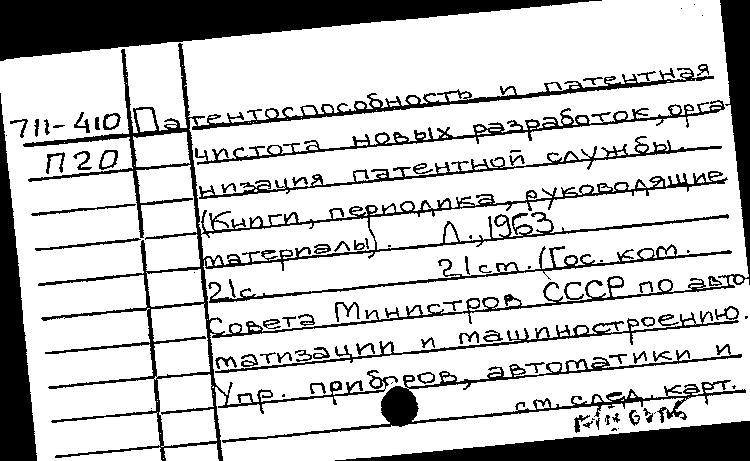 711-410 Патентоспособность и патентная
П20 чистота новых разработок, орга-
низация патентной службы.
(Книги, периодика, руководящие
материалы). Л., 1963.
21с. 21 cm. (Гос. ком.
Совета Министров СССР по авто-
матизации и машиностроению.
Упр. приборов, автоматики и
см. след. карт.